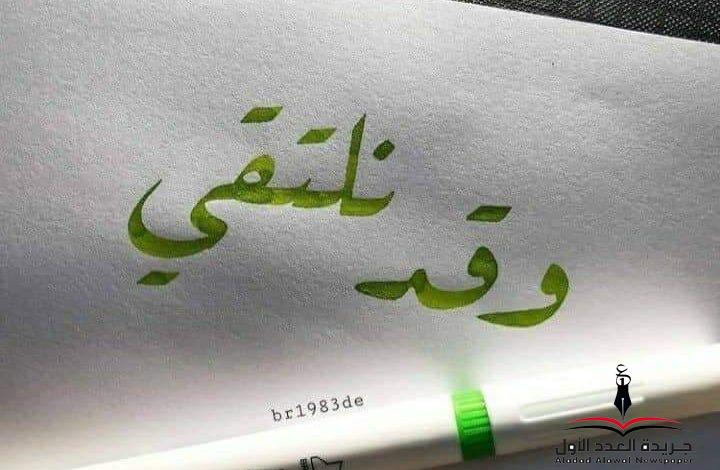 وقد نلتقي
br1983de
جريدة العدد الأول
Aladad Alawal Newspaper